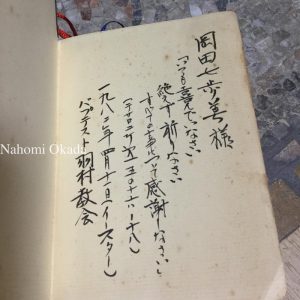 岡田七歩美様
「いつも喜んでいなさい
絶えず祈りなさい
すべての事について感謝しなさい」
(テサロニケ次五〇十六〜十八)
一九八二年四月十一日(イースター)
バプテスト羽村教会
Nahomi Okada